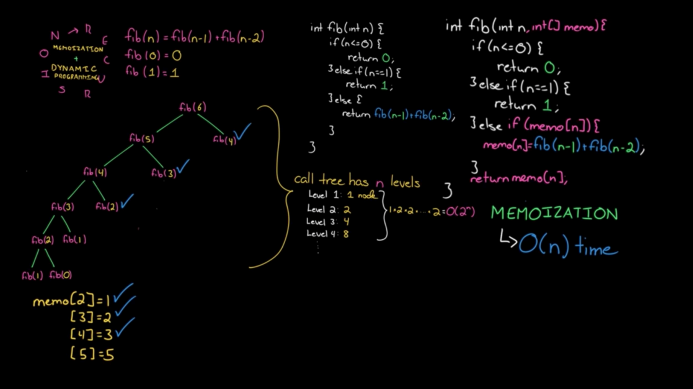 RECURSION
MEMOIZATION
+
DYNAMIC
PROGRAMMING
fib(n)=fib(n-1)+fib(n-2)
fib(0)=0
fib(1)=1
fib(6)
fib(5)
fib(4)
fib(4)
fib(3)
fib(3)
fib(2)
fib(2)
fib(1)
fib(1)
fib(0)
memo[2]=1
[3]=2
[4]=3
[5]=5
int fib(int n) {
if(n<=0) {
return 0;
}else if(n==1) {
return 1;
}else {
return fib(n-1)+fib(n-2);
}
}
call tree has n levels
Level 1: 1 node
Level 2: 2
Level 3: 4
Level 4: 8
1·2·2·...·2=O(2ⁿ)
int fib(int n, int[] memo){
if(n<=0) {
return 0;
}else if(n==1) {
return 1;
}else if (memo[n]) {
memo[n]=fib(n-1)+fib(n-2);
}
return memo[n];
}
MEMOIZATION
O(n) time